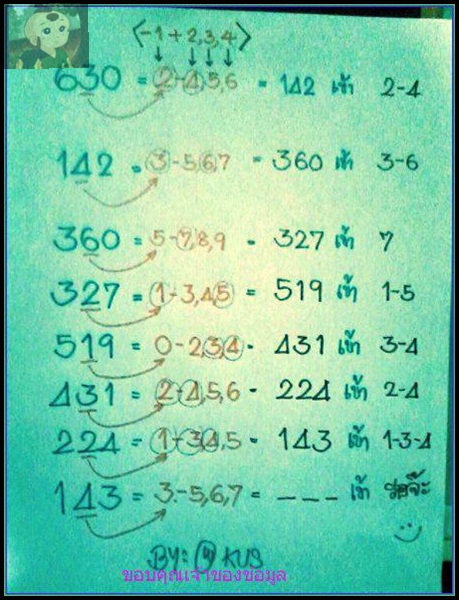 <-1+2,3,4>
630 = 2-4,5,6 = 142 เข้า 2-4
142 = 3-5,6,7 = 360 เข้า 3-6
360 = 5-7,8,9 - 327 เข้า 7
327 = 1-3,4,5 = 519 เข้า 1-5
519 = 0-2,3,4 - 431 เข้า 3-4
431 = 2-4,5,6 - 224 เข้า 2-4
224 = 1-3,4,5 - 143 เข้า 1-3-4
143 = 3-5,6,7 = _ _ _ เข้า รอจ๊ะ
BY: KUS
ขอบคุณเจ้าของข้อมูล